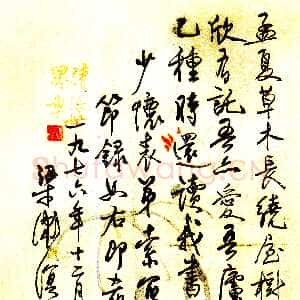 孟夏草木长繞屋樹
欣有託吾亦愛吾廬
已種時還讀我書
少懷表弟索
節錄如右即
一九七六年十二月
梁漱溟